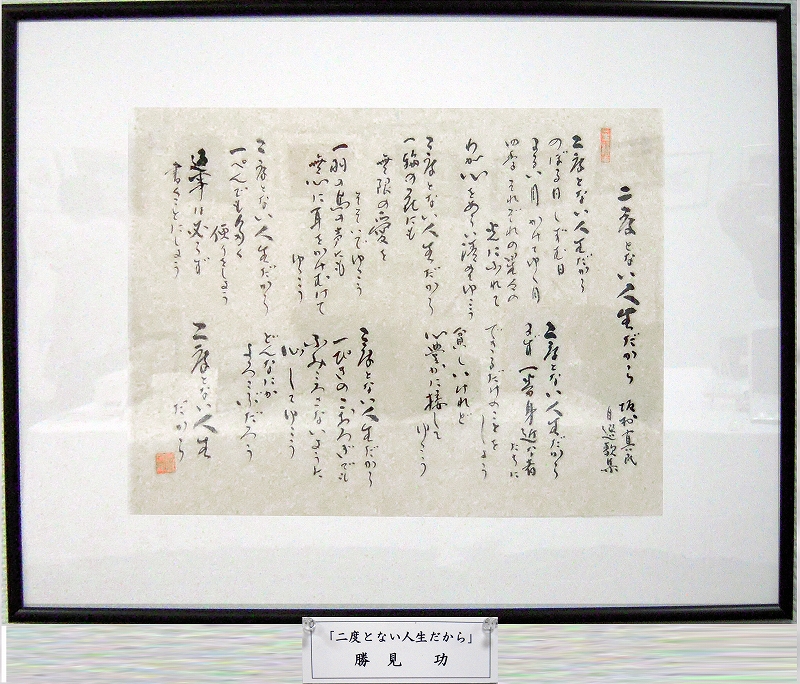 二度とない人生だから
坂村真民
二度とない人生だから
のぼる日しずむ日
まるい月かけてゆく月
四季それぞれの星々の
光にふれて
わが心をあらい清めてゆこう
二度とない人生だから
一輪の花にも
無限の愛を
そそいでゆこう
一羽の鳥の声にも
無心に耳をかたむけて
ゆこう
二度とない人生だから
一ぺんでも多く
便りをしよう
返事は必ず
書くことにしよう
二度とない人生だから
まず一番身近な者
たちに
できるだけのことを
しよう
貧しいけれど
心豊かに接して
ゆこう
二度とない人生だから
一ぴきのこおろぎでも
ふみころさないように
心してゆこう
どんなにか
よろこぶだろう
二度とない人生
だから
「二度とない人生だから」
勝見 功